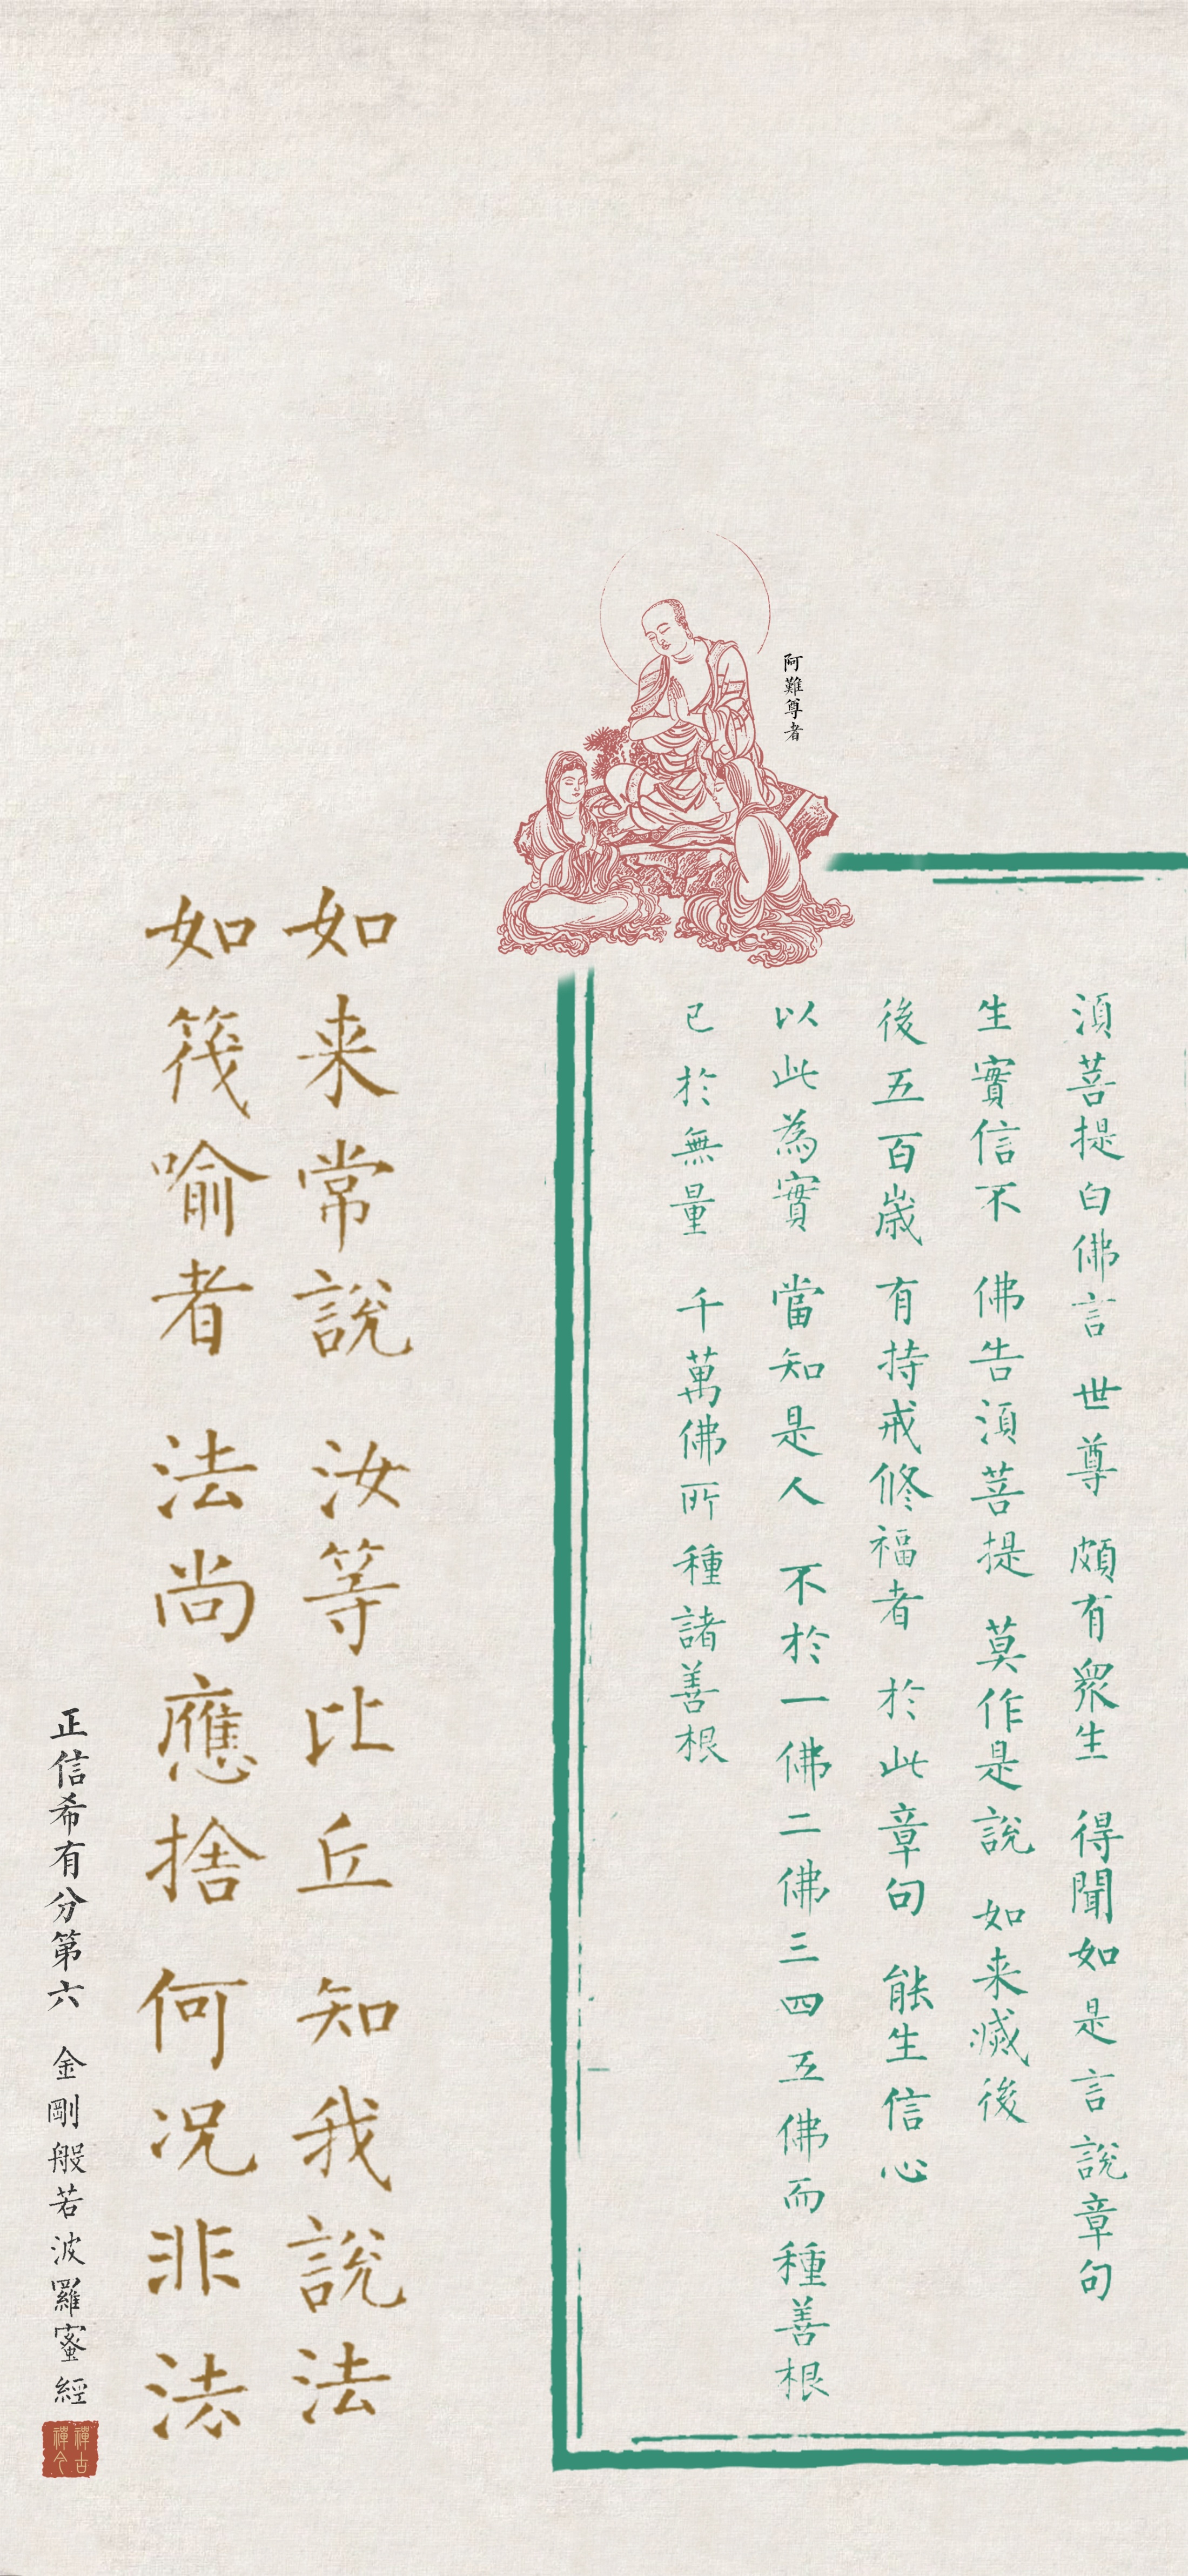 阿難尊者
湏菩提白佛言 世尊 頗有眾生 得聞如是言說章句
生實信不 佛告湏菩提 莫作是說 如来滅後
後五百歳 有持戒修福者 於此章句 能生信心
以此為實 當知是人 不於一佛二佛三四五佛而種善根
已於無量 千萬佛所種諸善根
如来常說 汝等比丘 知我說法
如筏喻者 法尚應捨 何况非法
正信希有分第六 金剛般若波羅蜜經
禪古
禪今